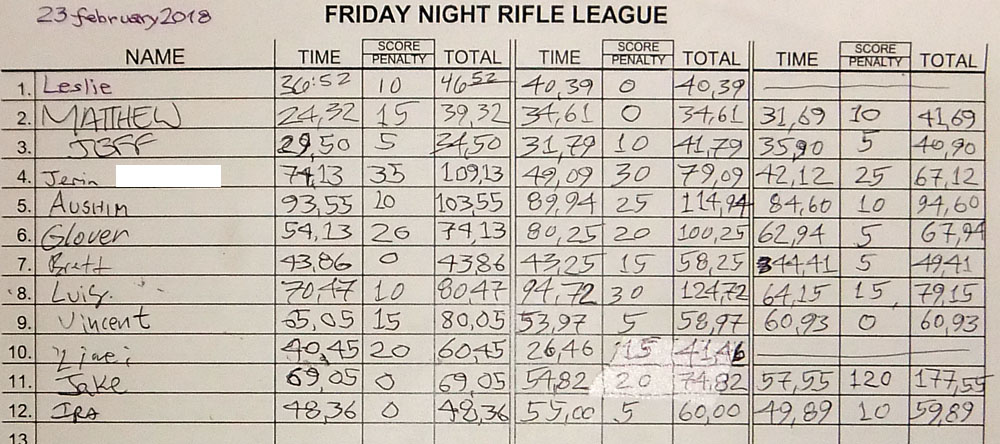 23 february 2018
FRIDAY NIGHT RIFLE LEAGUE
NAME TIME SCORE PENALTY TOTAL TIME SCORE PENALTY TOTAL TIME SCORE PENALTY TOTAL
1. Leslie 36:52 10 46 52 40,39 0 40,39
2. MATTHEW 24,32 15 39,32 34,61 0 34,61 31,69 10 41,69
3. JEFF 29,50 5 34,50 31,79 10 41,79 35,90 5 40,90
4. Jerin 74,13 35 109,13 49,09 30 79,09 42,12 25 67,12
5. AUSHIM 93,55 10 103,55 89,94 25 114,94 84,60 10 94,60
6. Glover 54,13 20 74,13 80,25 20 100,25 62,94 5 67,94
7. Brett 43,86 0 43,86 43,25 15 58,25 44,41 5 49,41
8. Luis. 70,47 10 80,47 94,72 30 124,72 64,15 15 79,15
9. Vincent 65,05 15 80,05 53,97 5 58,97 60,93 0 60,93
10. 40,45 20 60,45 26,46 15 41,46
11. Jake 69,05 0 69,05 54,82 20 74,82 57,55 120 177,55
12. IRA 48,36 0 48,36 55,00 5 60,00 49,89 10 59,89
13